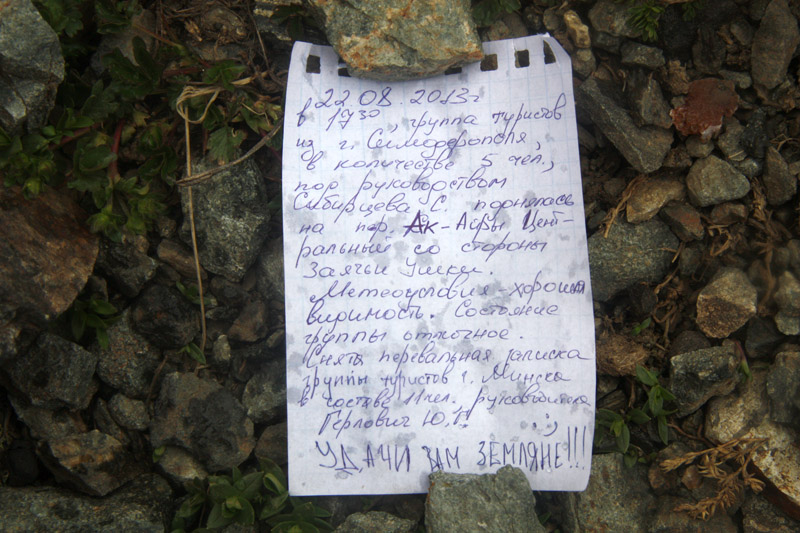 22.08.2013г
в 19³⁰, группа туристов
из г. Симферополя,
в количестве 5 чел.,
под руководством
Сибирцева С. поднялась
на пер. Ак-Аюры Цент-
ральный со стороны
Заячьи Ушки.
Метеоусловия - хорошая
видимость. Состояние
группы отличное.
Снята перевальная записка
группы туристов г. Минска
в составе 11 чел. руководителя
Герлович Ю.
УДАЧИ ВАМ ЗЕМЛЯНЕ!!!